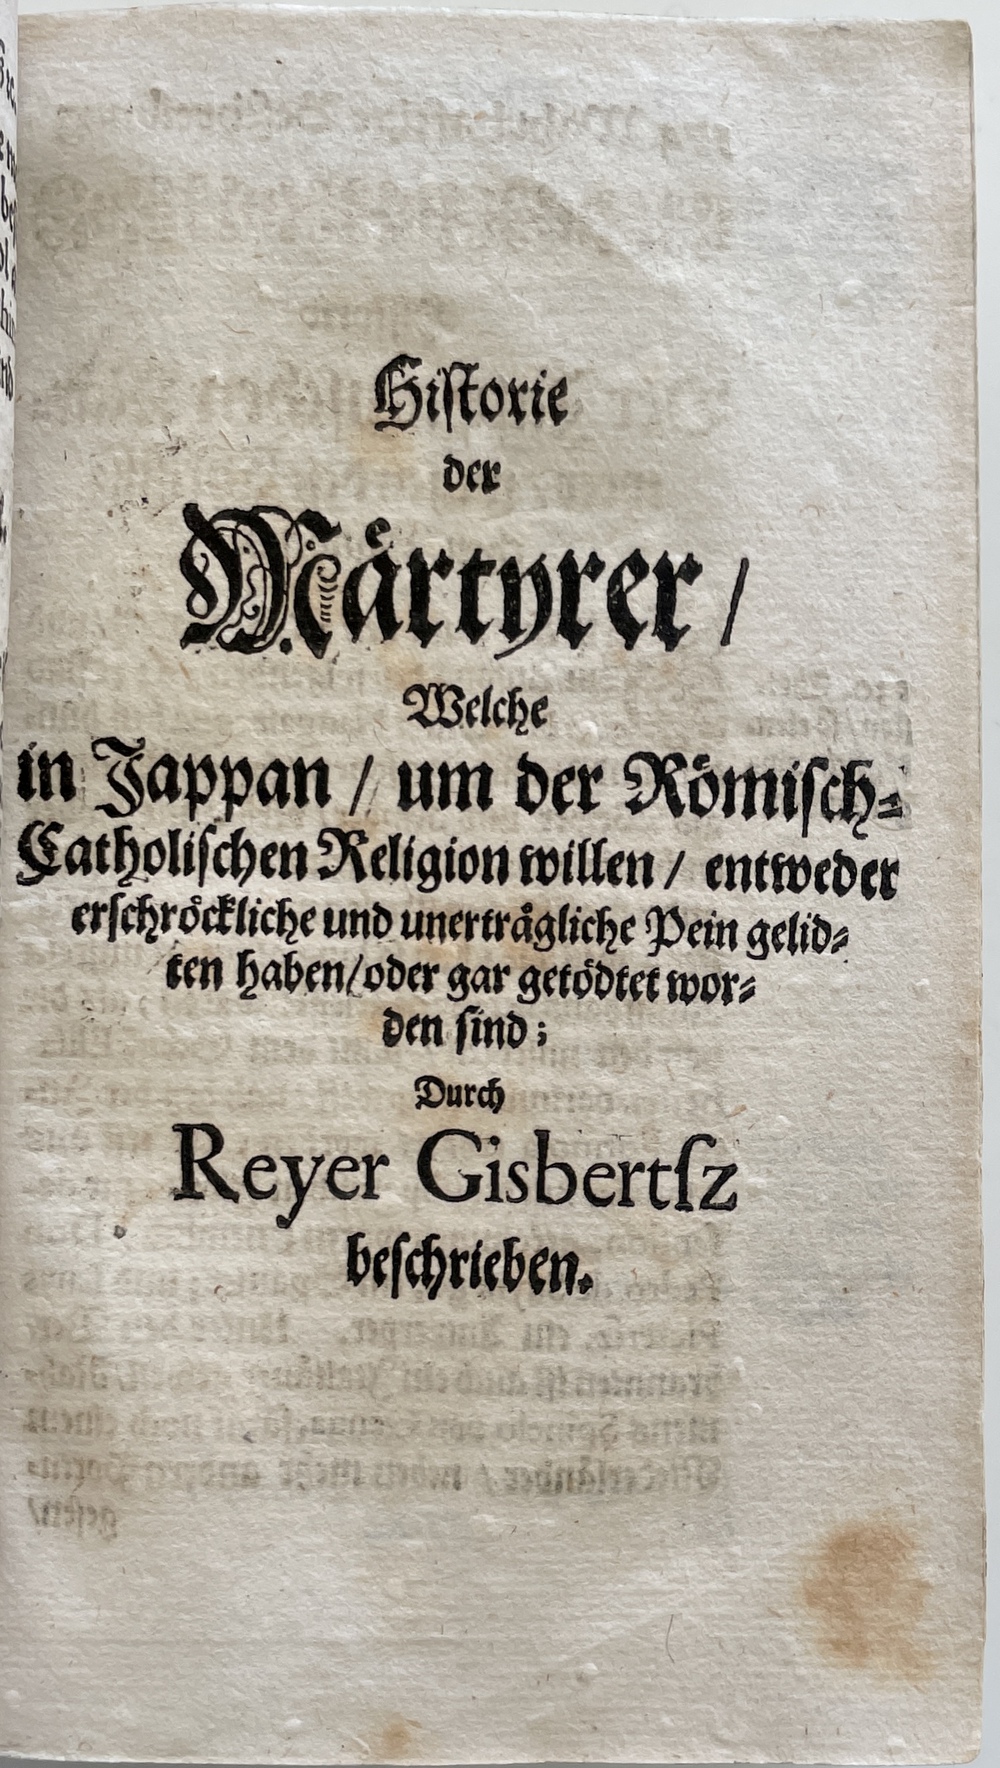 Hiſtorie
der
Maͤrtyrer /
Welche
in Jappan / um der Roͤmiſch⸗
Catholiſchen Religion willen / entweder
erſchroͤckliche und unertraͤgliche Pein gelid⸗
ten haben / oder gar getoͤdtet wor⸗
den ſind ;
Durch
Reyer Gisbertſz
beſchrieben.